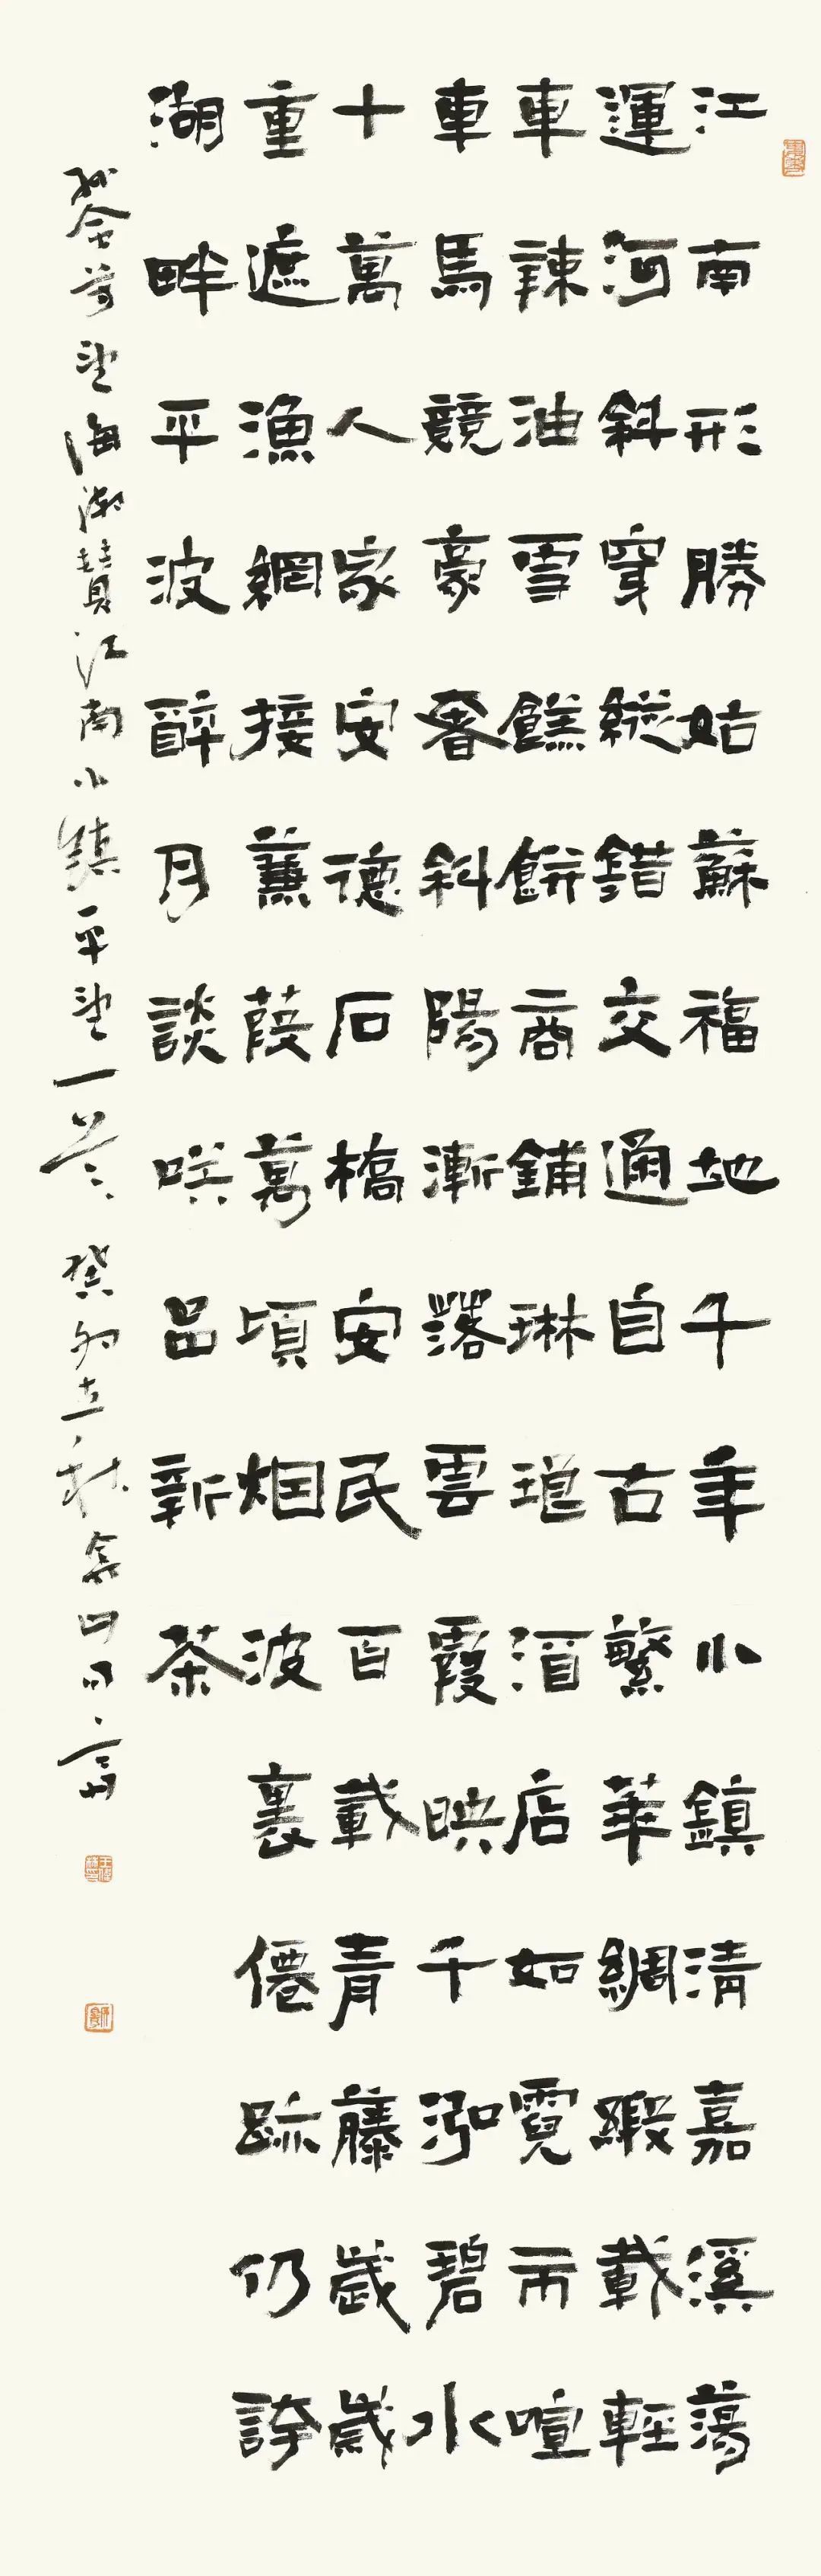 江南形勝姑蘇福地千年小鎮清嘉溪蕩
運河斜穿縱錯交通自古繁華綢緞載輕
車辣油雪餻餅商鋪琳琅酒店如霓市喧
車馬競豪奢斜陽漸落雲霞映千泓碧水
十萬人家安德石橋安民百載青藤歲歲
重遮漁網接蒹葭萬頃烟波裏僊跡仍誇
湖畔平波醉月談咲品新茶
望海潮贊江南小鎮平望一 癸卯立秋